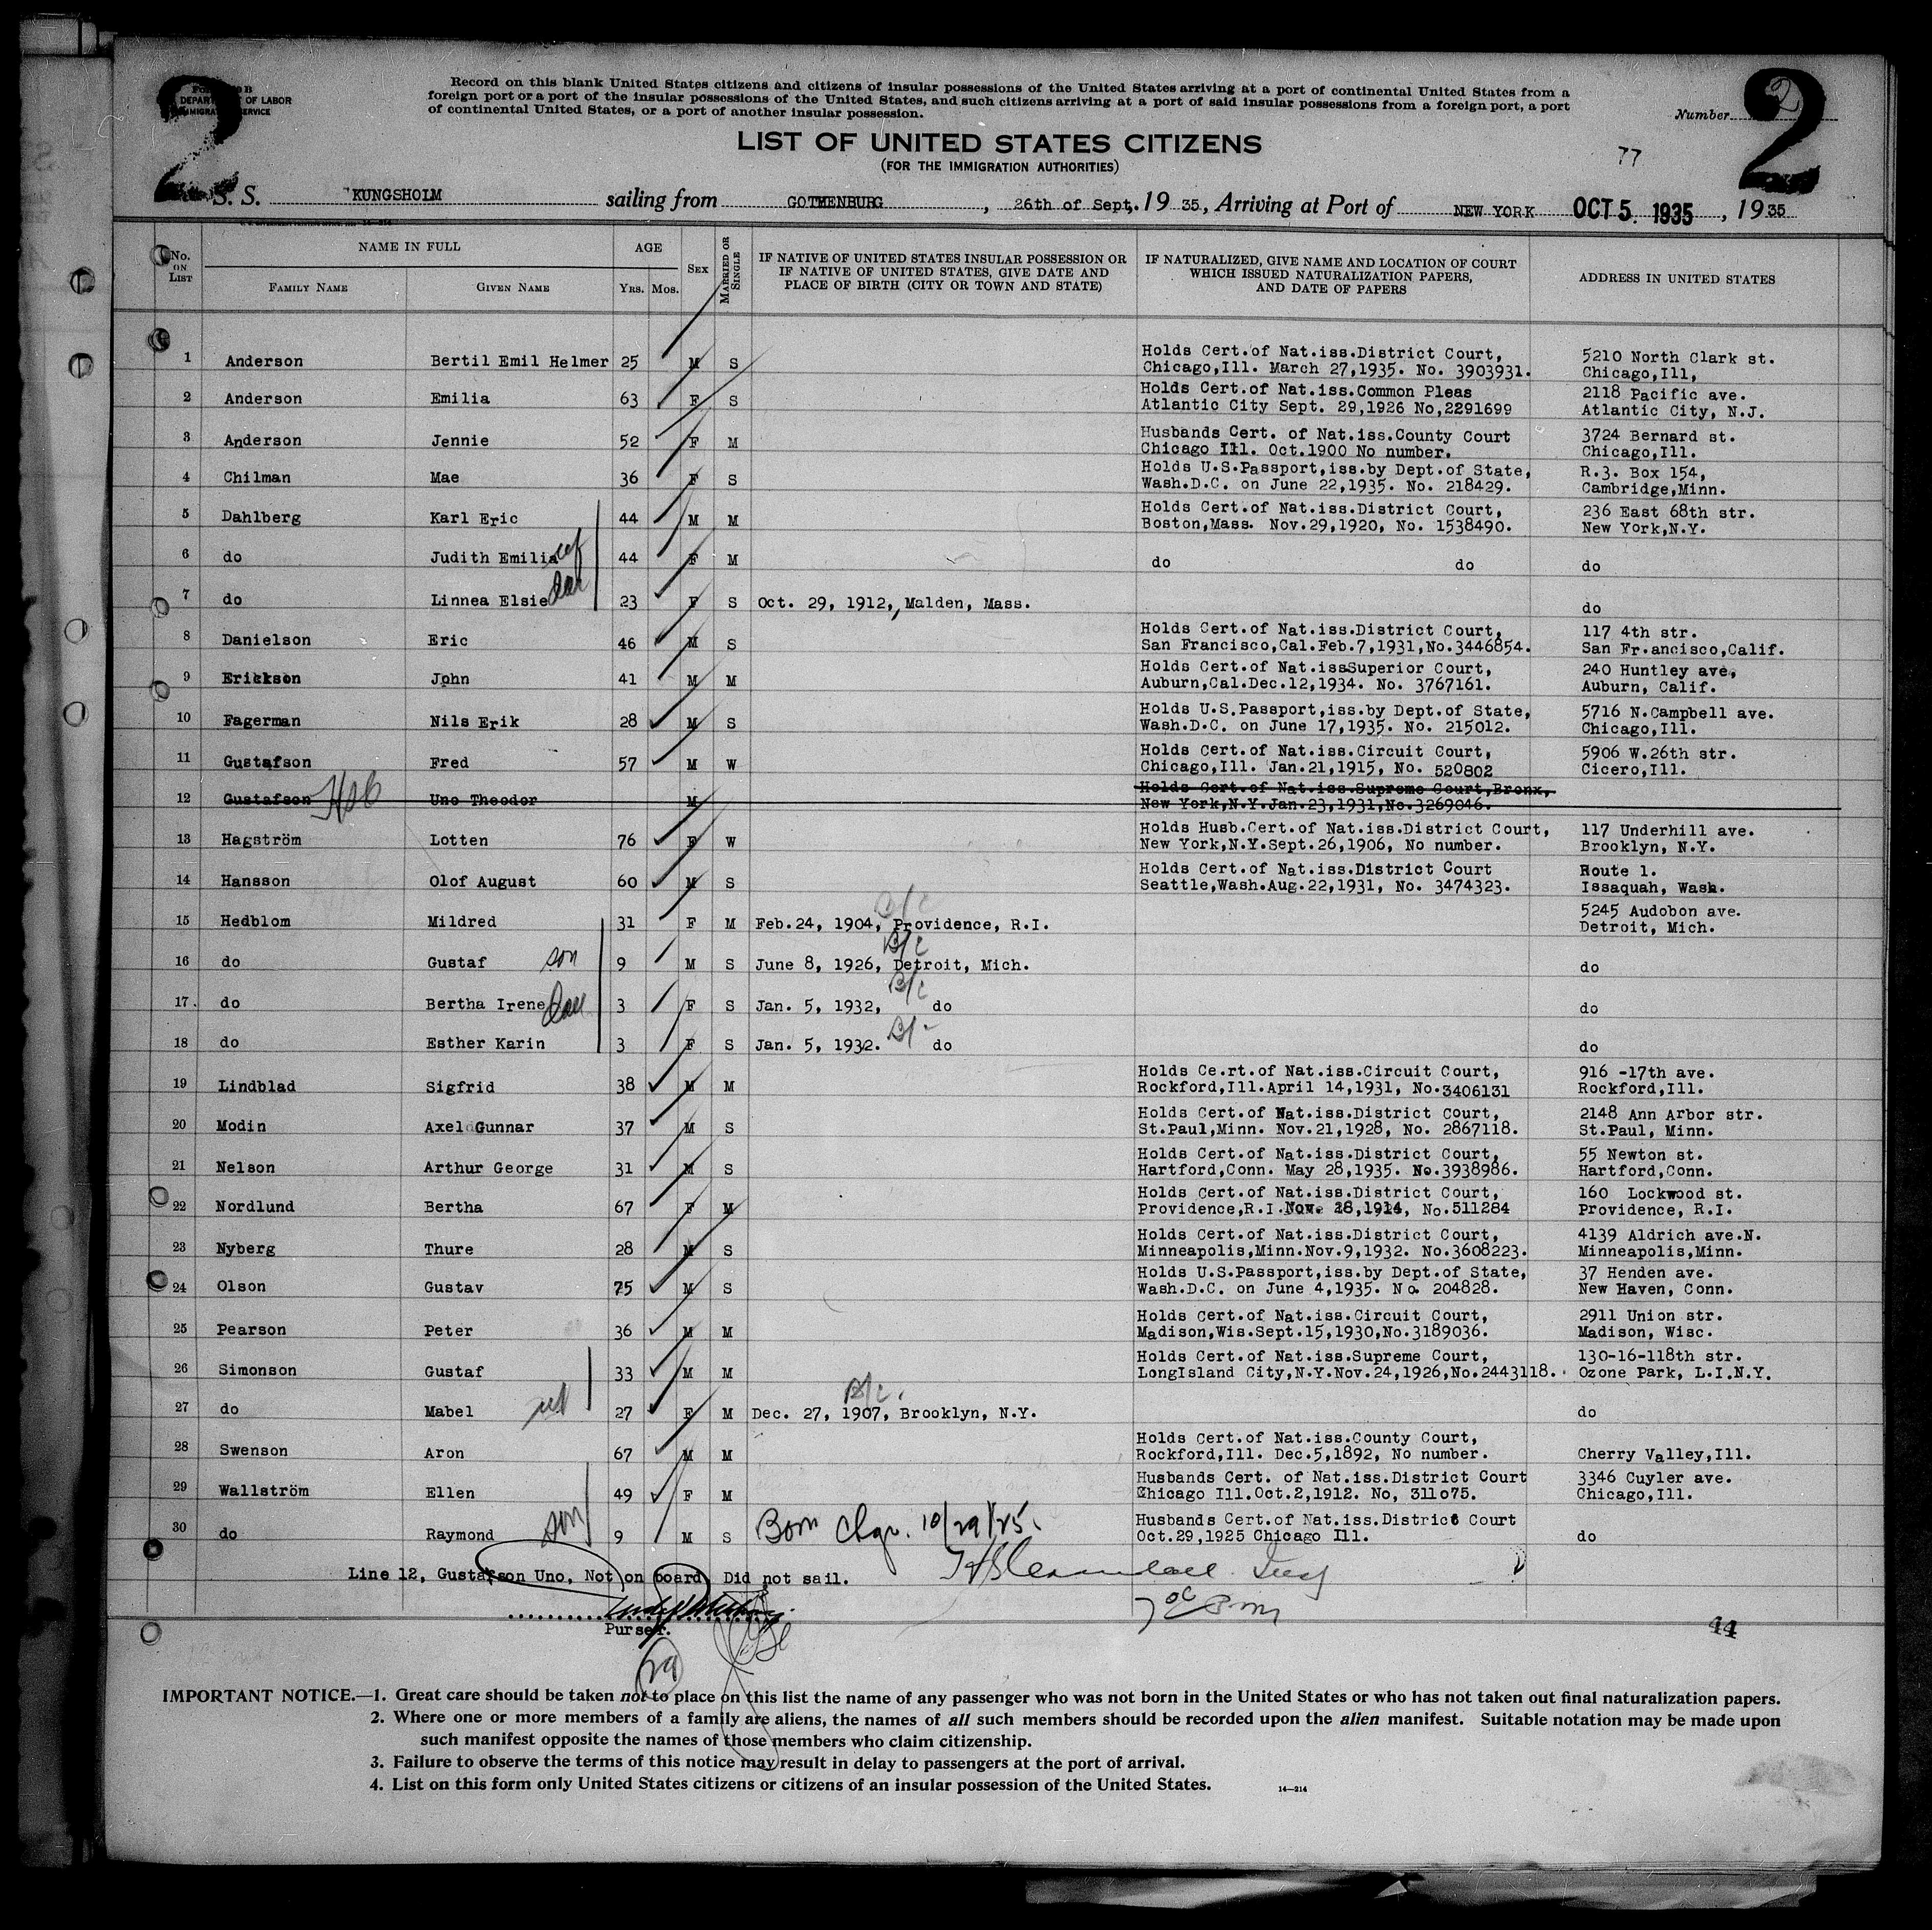 2
Form 630 B
DEPARTMENT OF LABOR
IMMIGRATION SERVICE
Record on this blank United States citizens and citizens of insular possessions of the United States arriving at a port of continental United States from a
foreign port or a port of the insular possessions of the United States, and such citizens arriving at a port of said insular possessions from a foreign port, a port
of continental United States, or a port of another insular possession.
Number 2
2
LIST OF UNITED STATES CITIZENS
(FOR THE IMMIGRATION AUTHORITIES)
77
S. S. KUNGSHOLM sailing from GOTHENBURG, 26th of Sept, 1935, Arriving at Port of NEW YORK OCT 5. 1935, 1935
No. ON LIST NAME IN FULL FAMILY NAME GIVEN NAME AGE YRS. MOS. SEX MARRIED OR SINGLE
IF NATIVE OF UNITED STATES INSULAR POSSESSION OR IF NATIVE OF UNITED STATES, GIVE DATE AND PLACE OF BIRTH (CITY OR TOWN AND STATE)
IF NATURALIZED, GIVE NAME AND LOCATION OF COURT WHICH ISSUED NATURALIZATION PAPERS, AND DATE OF PAPERS
ADDRESS IN UNITED STATES
1 Anderson Bertil Emil Helmer 25 M S Holds Cert.of Nat.iss.District Court, Chicago,Ill. March 27,1935. No. 3903931. 5210 North Clark st. Chicago,Ill,
2 Anderson Emilia 63 F S Holds Cert.of Nat.iss.Common Pleas Atlantic City Sept. 29,1926 No,2291699 2118 Pacific ave. Atlantic City, N.J.
3 Anderson Jennie 52 F M Husbands Cert. of Nat.iss.County Court Chicago Ill. Oct.1900 No number. 3724 Bernard st. Chicago,Ill.
4 Chilman Mae 36 F S Holds U.S.Passport,iss.by Dept.of State, Wash.D.C. on June 22,1935. No. 218429. R.3. Box 154, Cambridge,Minn.
5 Dahlberg Karl Eric 44 M M Holds Cert.of Nat.iss.District Court, Boston,Mass. Nov.29,1920, No. 1538490. 236 East 68th str. New York,N.Y.
6 do Judith Emilia 44 F M do do do
7 do Linnea Elsie dau 23 F S Oct. 29, 1912, Malden, Mass. do
8 Danielson Eric 46 M S Holds Cert.of Nat.iss.District Court, San Francisco,Cal.Feb.7,1931,No.3446854. 117 4th str. San Fr.ancisco,Calif.
9 Erickson John 41 M M Holds Cert.of Nat.issSuperior Court, Auburn,Cal.Dec.12,1934. No. 3767161. 240 Huntley ave, Auburn, Calif.
10 Fagerman Nils Erik 28 M S Holds U.S.Passport,iss.by Dept.of State, Wash.D.C. on June 17,1935. No. 215012. 5716 N.Campbell ave. Chicago,Ill.
11 Gustafson Fred 57 M W Holds Cert.of Nat.iss.Circuit Court, Chicago,Ill. Jan.21,1915, No. 520802 5906 W.26th str. Cicero,Ill.
12 Gustafson Uno Theodor M Holds Cert.of Nat.iss.Supreme Court,Bronx, New York,N.Y.Jan.23,1931,No.3269046.
13 Hagström Lotten 76 F W Holds Husb.Cert.of Nat.iss.District Court, New York,N.Y.Sept.26,1906, No number. 117 Underhill ave. Brooklyn, N.Y.
14 Hansson Olof August 60 M S Holds Cert.of Nat.iss.District Court Seattle,Wash.Aug.22,1931, No. 3474323. Route 1. Issaquah, Wash.
15 Hedblom Mildred 31 F M Feb.24, 1904, Providence, R.I. B/C 5245 Audobon ave. Detroit, Mich.
16 do Gustaf son 9 M S June 8, 1926, Detroit, Mich. B/C do
17. do Bertha Irene dau 3 F S Jan. 5, 1932, do B/C do
18 do Esther Karin 3 F S Jan. 5, 1932. do do
19 Lindblad Sigfrid 38 M M Holds Ce.rt.of Nat.iss.Circuit Court, Rockford,Ill.April 14,1931, No.3406131 916 -17th ave. Rockford,Ill.
20 Modin Axel Gunnar 37 M S Holds Cert.of Nat.iss.District Court, St.Paul,Minn. Nov.21,1928, No. 2867118. 2148 Ann Arbor str. St.Paul, Minn.
21 Nelson Arthur George 31 M S Holds Cert.of Nat.iss.District Court, Hartford,Conn. May 28,1935. No.3938986. 55 Newton st. Hartford,Conn.
22 Nordlund Bertha 67 F M Holds Cert.of Nat.iss.District Court, Providence,R.I.Nov. 28,1914, No.511284 160 Lockwood st. Providence, R.I.
23 Nyberg Thure 28 M S Holds Cert.of Nat.iss.District Court, Minneapolis,Minn.Nov.9,1932. No.3608223. 4139 Aldrich ave.N. Minneapolis,Minn.
24 Olson Gustav 75 M S Holds U.S.Passport,iss.by Dept.of State, Wash.D.C. on June 4,1935. No. 204828. 37 Henden ave. New Haven, Conn.
25 Pearson Peter 36 M M Holds Cert.of Nat.iss.Circuit Court, Madison,Wis.Sept.15,1930,No.3189036. 2911 Union str. Madison, Wisc.
26 Simonson Gustaf 33 M M Holds Cert.of Nat.iss.Supreme Court, LongIsland City,N.Y.Nov.24,1926,No.2443118. 130-16-118th str. Ozone Park, L.I.N.Y.
27 do Mabel 27 F M Dec. 27, 1907, Brooklyn, N.Y. B/C. do
28 Swenson Aron 67 M M Holds Cert.of Nat.iss.County Court, Rockford,Ill. Dec.5,1892, No number. Cherry Valley,Ill.
29 Wallström Ellen 49 F M Husbands Cert. of Nat.iss.District Court Chicago Ill.Oct.2,1912. No, 311075. 3346 Cuyler ave. Chicago,Ill.
30 do Raymond son 9 M S Born Chgo. 10/29/25. Husbands Cert.of Nat.iss.District Court Oct.29,1925 Chicago Ill. do
Line 12, Gustafson Uno, Not on board Did not sail.
Purser.
29
44
IMPORTANT NOTICE.—1. Great care should be taken not to place on this list the name of any passenger who was not born in the United States or who has not taken out final naturalization papers.
2. Where one or more members of a family are aliens, the names of all such members should be recorded upon the alien manifest. Suitable notation may be made upon
such manifest opposite the names of those members who claim citizenship.
3. Failure to observe the terms of this notice may result in delay to passengers at the port of arrival.
4. List on this form only United States citizens or citizens of an insular possession of the United States.
14—214